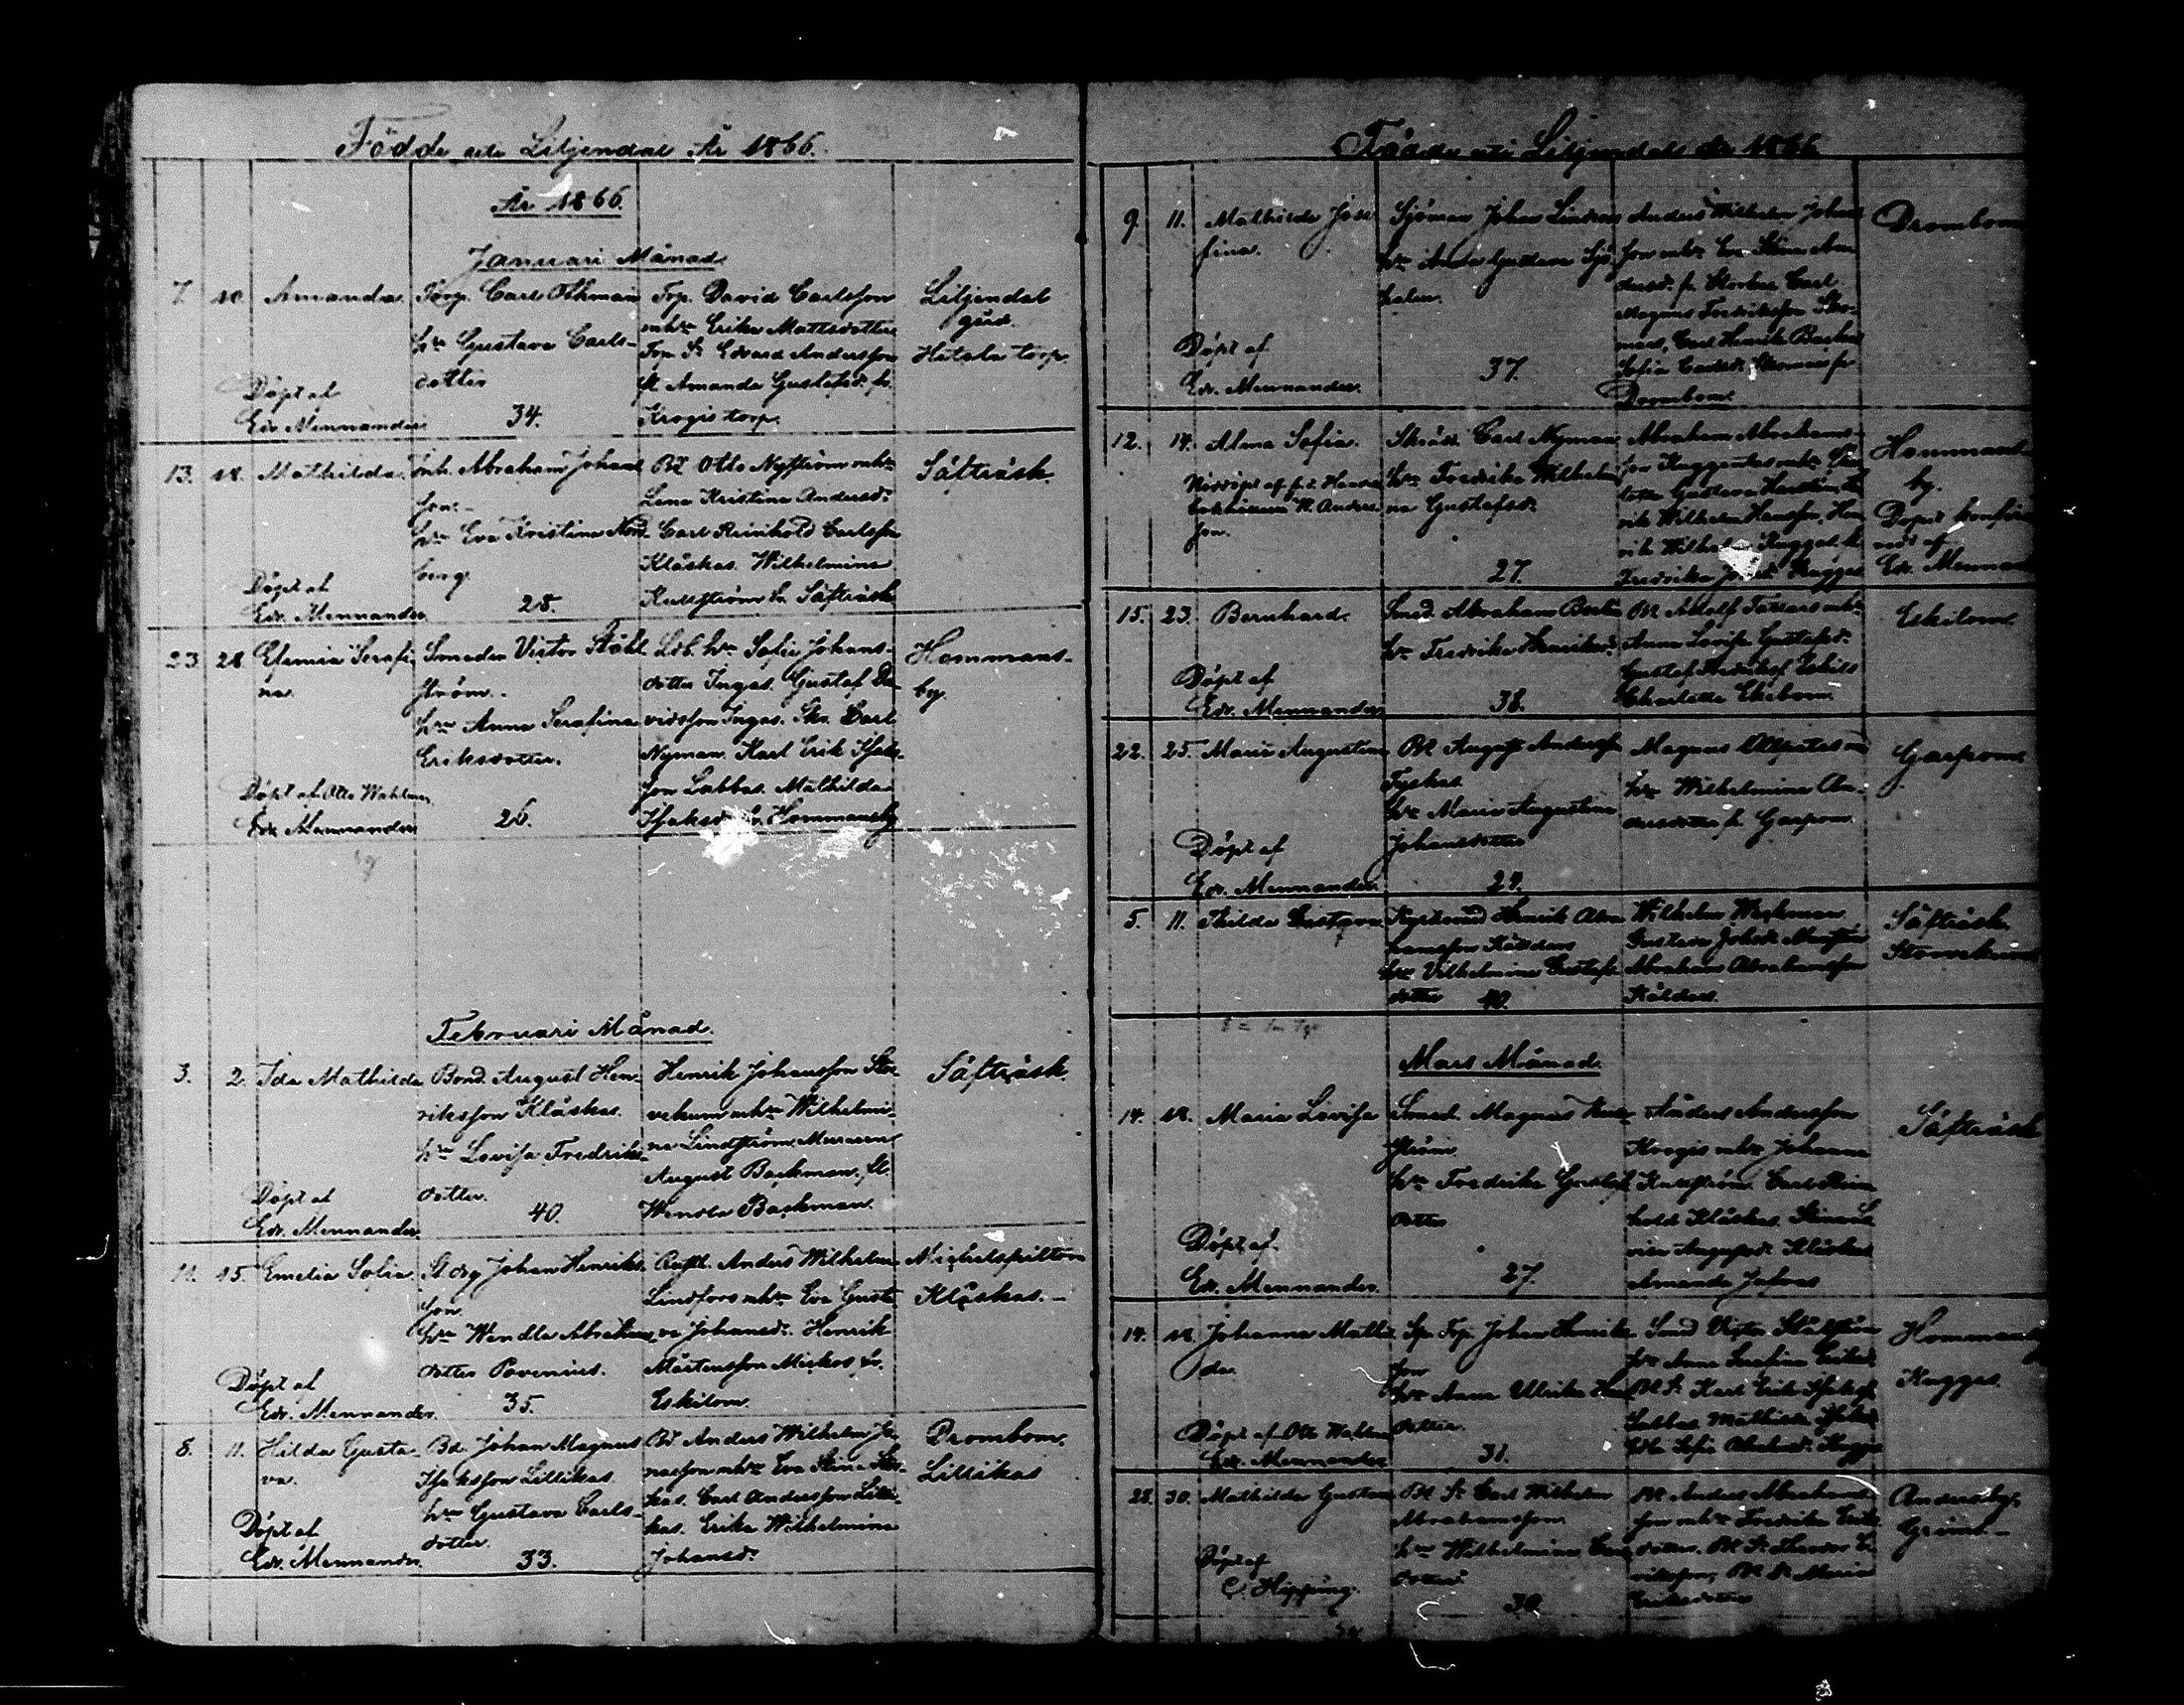 Födde uti Liljendal År 1866.
År 1866.
Januari Månad
7. 10. Amanda.
Döpt af
Edv. Mennander.
Torp. Carl Othman
h:u Gustava Carls-
dotter
34.
Torp. David Carlsson
m.h:u Erika Mattsdotter
Torp. S. Edvard Andersson
Amanda Gustafsd:r fr.
Krogis torp.
Liljendal
gård.
Hitala torp.
13. 18. Mathilda.
Döpt af
Edv. Mennander
Inh. Abraham Johans
son.
h:u Eva Kristina Nord-
berg.
28.
Bd Otto Nyström m.h:u
Lena Kristina Andersd:r
Carl Reinhold Carlsson
Klåskas. Wilhelmina
Kullström fr. Säfträsk
Säfträsk.
23. 28. Efemia Serafi-
na.
Döpt af Otto Wahlman
Edv. Mennander
Smeden Victor Ståhl-
ström.
h:u Anna Serafina
Eriksdotter.
26.
h:u Sofia Johans-
dotter Ingas. Gustaf Da-
vidsson Ingas. Skr. Carl
Nyman. Karl Erik Isaks-
son Labbas. Mathilda
Isaksd:r fr. Hommansby
Hommans-
by.
Februari Månad.
3. 2. Ida Mathilda
Döpt af
Edv. Mennander.
Bond. August Hen-
riksson Klåskas.
h:u Lovisa Fredriks-
dotter.
40.
Henrik Johansson Stor
m.h:u Wilhelmi-
na Lindström
August Backman,
Wendla Backman.
Säfträsk.
11. 15. Emelia Sofia
Döpt af
Edv. Mennander.
Johan Henriks-
son
h:u Wendla Abrahams
dotter Povenius.
35.
Anders Wilhelm
Lindfors m.h:u Eva Gusta
va Johansd:r Henrik
Mårtensson Mickos fr.
Eskilom.
Michelspiltom
Klåskas.-
8. 11. Hilda Gusta-
va.
Döpt af
Edv. Mennander.
Bd. Johan Magnus
Isaksson Lillikas.
h:u Gustava Carls-
dotter.
33.
Bd Anders Wilhelm Jo-
nasson m.h:u Eva Stina Stor-
kas. Carl Andersson Lilli-
kas. Erika Wilhelmina
Johansd:r
Drombom.
Lillikas
Födde uti Liljendal År 1866
9. 11. Mathilda Jose
fina.
Döpt af
Edv. Mennander.
Sjöman Johan Lindros
h:u Anna Gustava Sjö
holm.
37.
Anders Wilhelm Johans
son m.h:u Eva Stina An
dersd. fr. Storkas Carl
Magnus Fredriksson Sko-
mars, Carl Henrik Backas
Sofia Carlsd. Skomars fr
Drombom.
Drombom
12. 14. Alma Sofia.
Nöddöpt af
Anders
son.
Skräd. Carl Nyman
h:u Fredrika Wilhelmi
na Gustafsd.
27.
Abraham Abrahams-
son Kuggas m.h:u
Gustava
rik Wilhelm Hansson, Hen
rik Wilhelm Kugges
Fredrika Kugges
Hommans
by.
Dopet konfir-
merad af
Edv. Mennan
15. 23. Bernhard.
Döpt af
Edv. Mennander
Smed. Abraham Berlin
h:u Fredrika Henriksd:r
38.
Bd. Adolf Tassars m.h:u
Anna Lovisa Gustafsd.
Gustaf Eskils
Charlotta Ekebom.
Eskilom
22. 25. Maria Augustina
Döpt af
Edv. Mennander.
Bd. August Andersson
Tyskas
h:u Maria Augustina
Johansdotter
29.
Magnus
h:u Wilhelmina An-
dersdotter fr. Garpom.
Garpom
5. 11. Hilda Gustava
Henrik Abra
hamsson Källdars
h:u Vilhelmina Gustafs
dotter 40.
Wilhelm Weckman
Gustava Johsd.
Abraham Abrahamsson
Källdars.
Säfträsk
Mars Månad.
14. 18. Maria Lovisa
Döpt af.
Edv. Mennander.
Smed. Magnus Kull-
ström
h:u Fredrika Gustafs
dotter
27.
Anders Andersson
Krogis m.h:u Johanna
Kullström. Carl Rein
hold Klåskas.
Augustd. Klåskas
Amanda
Säfträsk
14. 18. Johanna Mathil
da.
Döpt af Otto Wahlman
Edv. Mennander
Torp. Johan Henriks
son
h:u Anna Ulrika
dotter.
31.
Smed Victor Ståhlström
h:u Anna Serafina Eriksd.
Bd. S. Karl Erik Isaksson
Labbas Mathilda Isaksd
Sofia Kugges
Hommansby
Kugges.
28. 30. Mathilda Gustava
Döpt af
C. Hipping.
Bd. S. Carl Wilhelm
Abrahamsson
h:u Wilhelmina
dotter
30.
Bd. Anders Abrahams-
son m.h:u Fredrika Eriks
dotter. Bd. S. E-
riksson, Bd. D. Maria
Eriksdotter
Andersby.